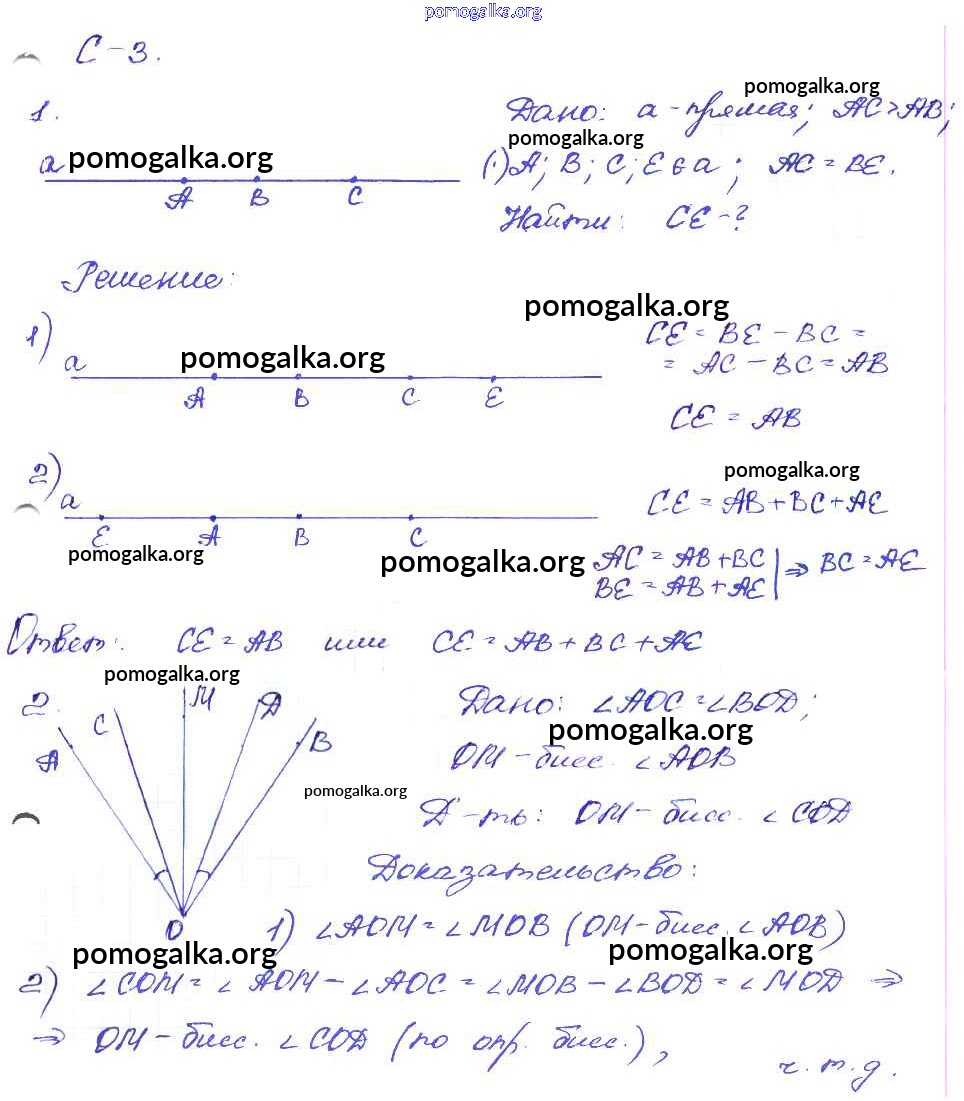 pomogalka.org
С-3.
pomogalka.org
1.
Дано: а - прямая; AC > AB;
pomogalka.org
a pomogalka.org
(·) A; B; C; E ∈ a; AC = BE.
A B C
Найти: CE - ?
Решение:
pomogalka.org
1)
CE = BE - BC =
a pomogalka.org
= AC - BC = AB
A B C E
CE = AB
2)
pomogalka.org
a
CE = AB + BC + AE
E A B C
pomogalka.org
pomogalka.org
AC = AB + BC
BE = AB + AE | ⇒ BC = AE
Ответ: CE = AB или CE = AB + BC + AE
pomogalka.org
2.
A C M D B
O
Дано: ∠AOC = ∠BOD;
pomogalka.org
OM - бисс. ∠AOB
pomogalka.org
Д-ть: OM - бисс. ∠COD
Доказательство:
1) ∠AOM = ∠MOB (OM - бисс. ∠AOB)
pomogalka.org pomogalka.org
2) ∠COM = ∠AOM - ∠AOC = ∠MOB - ∠BOD = ∠MOD ⇒
⇒ OM - бисс. ∠COD (по опр. бисс.),
ч.т.д.